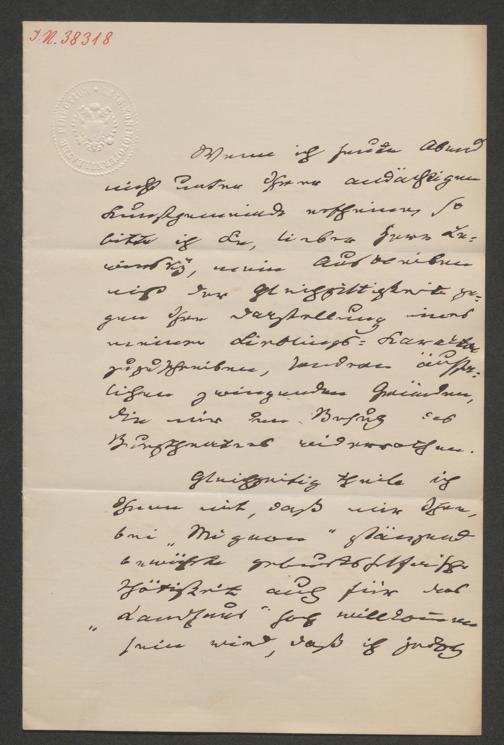 J.N. 38318
Wenn ich heute Abend
nicht unter Ihrer andächtigen
Kunstgemeinde erscheine, so
bitte ich Sie, lieber Herr Le-
winsky, mein Ausbleiben
nicht der Gleichgiltigkeit ge-
gen Ihre Darstellung eines
meiner Lieblings-Karakter
zuzuschreiben, sondern äußer-
lichen zwingenden Gründen,
die mir den Besuch des
Burgtheaters widerrathen.
Gleichzeitig theile ich
Ihnen mit, daß mir Ihre,
bei „Mignon" glänzend
bewährte geburtshelferische
Thätigkeit auch für das
„Landhaus" hoch willkommen
sein wird, daß ich jedoch